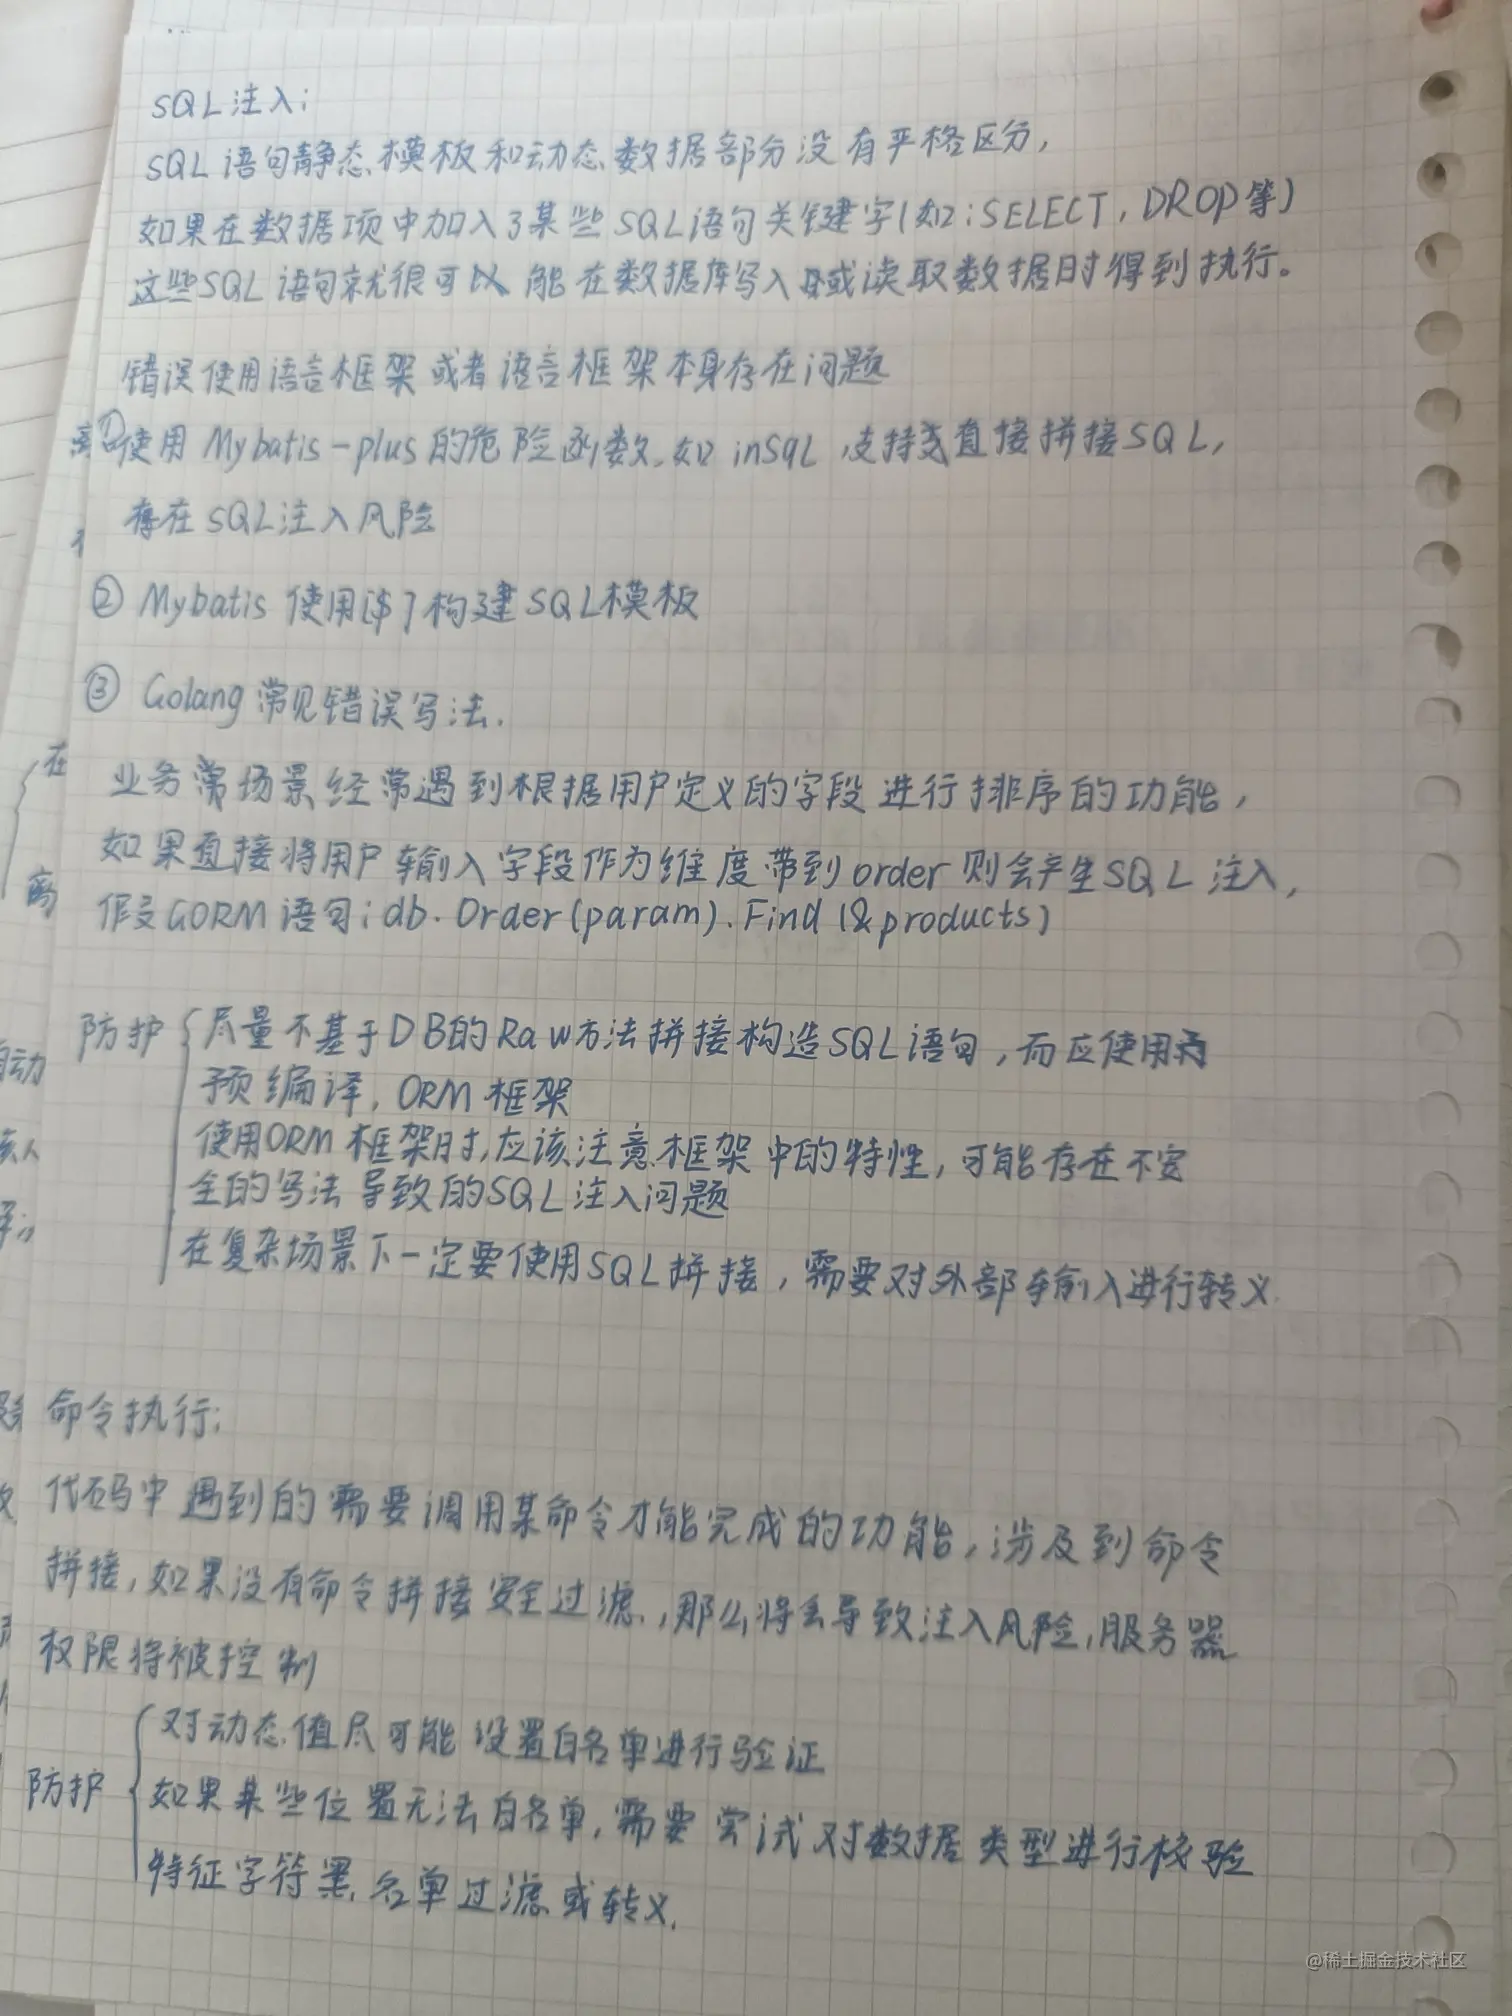 SQL注入：
SQL语句静态模板和动态数据部分没有严格区分，
如果在数据项中加入了某些SQL语句关键字(如：SELECT，DROP等)
这些SQL语句就很可以能在数据库写入或读取数据时得到执行。
错误使用语言框架或者语言框架本身存在问题
①使用Mybatis-plus的危险函数，如inSql，支持直接拼接SQL，
存在SQL注入风险
② Mybatis使用[$]构建SQL模板
③ Golang常见错误写法.
业务常场景经常遇到根据用户定义的字段进行排序的功能，
如果直接将用户输入字段作为维度带到order则会产生SQL注入，
假设GORM语句：db.Order(param).Find(&products)
防护
尽量不基于DB的Raw方法拼接构造SQL语句，而应使用
预编译，ORM框架
使用ORM框架时，应该注意框架中的特性，可能存在不安
全的写法导致的SQL注入问题
在复杂场景下一定要使用SQL拼接，需要对外部输入进行转义.
命令执行：
代码中遇到的需要调用某命令才能完成的功能，涉及到命令
拼接，如果没有命令拼接安全过滤，那么将会导致注入风险，服务器
权限将被控制
防护
对动态值尽可能设置白名单进行验证
如果某些位置无法白名单，需要尝试对数据类型进行校验
特征字符黑名单过滤或转义.
在
离
自动
@稀土掘金技术社区